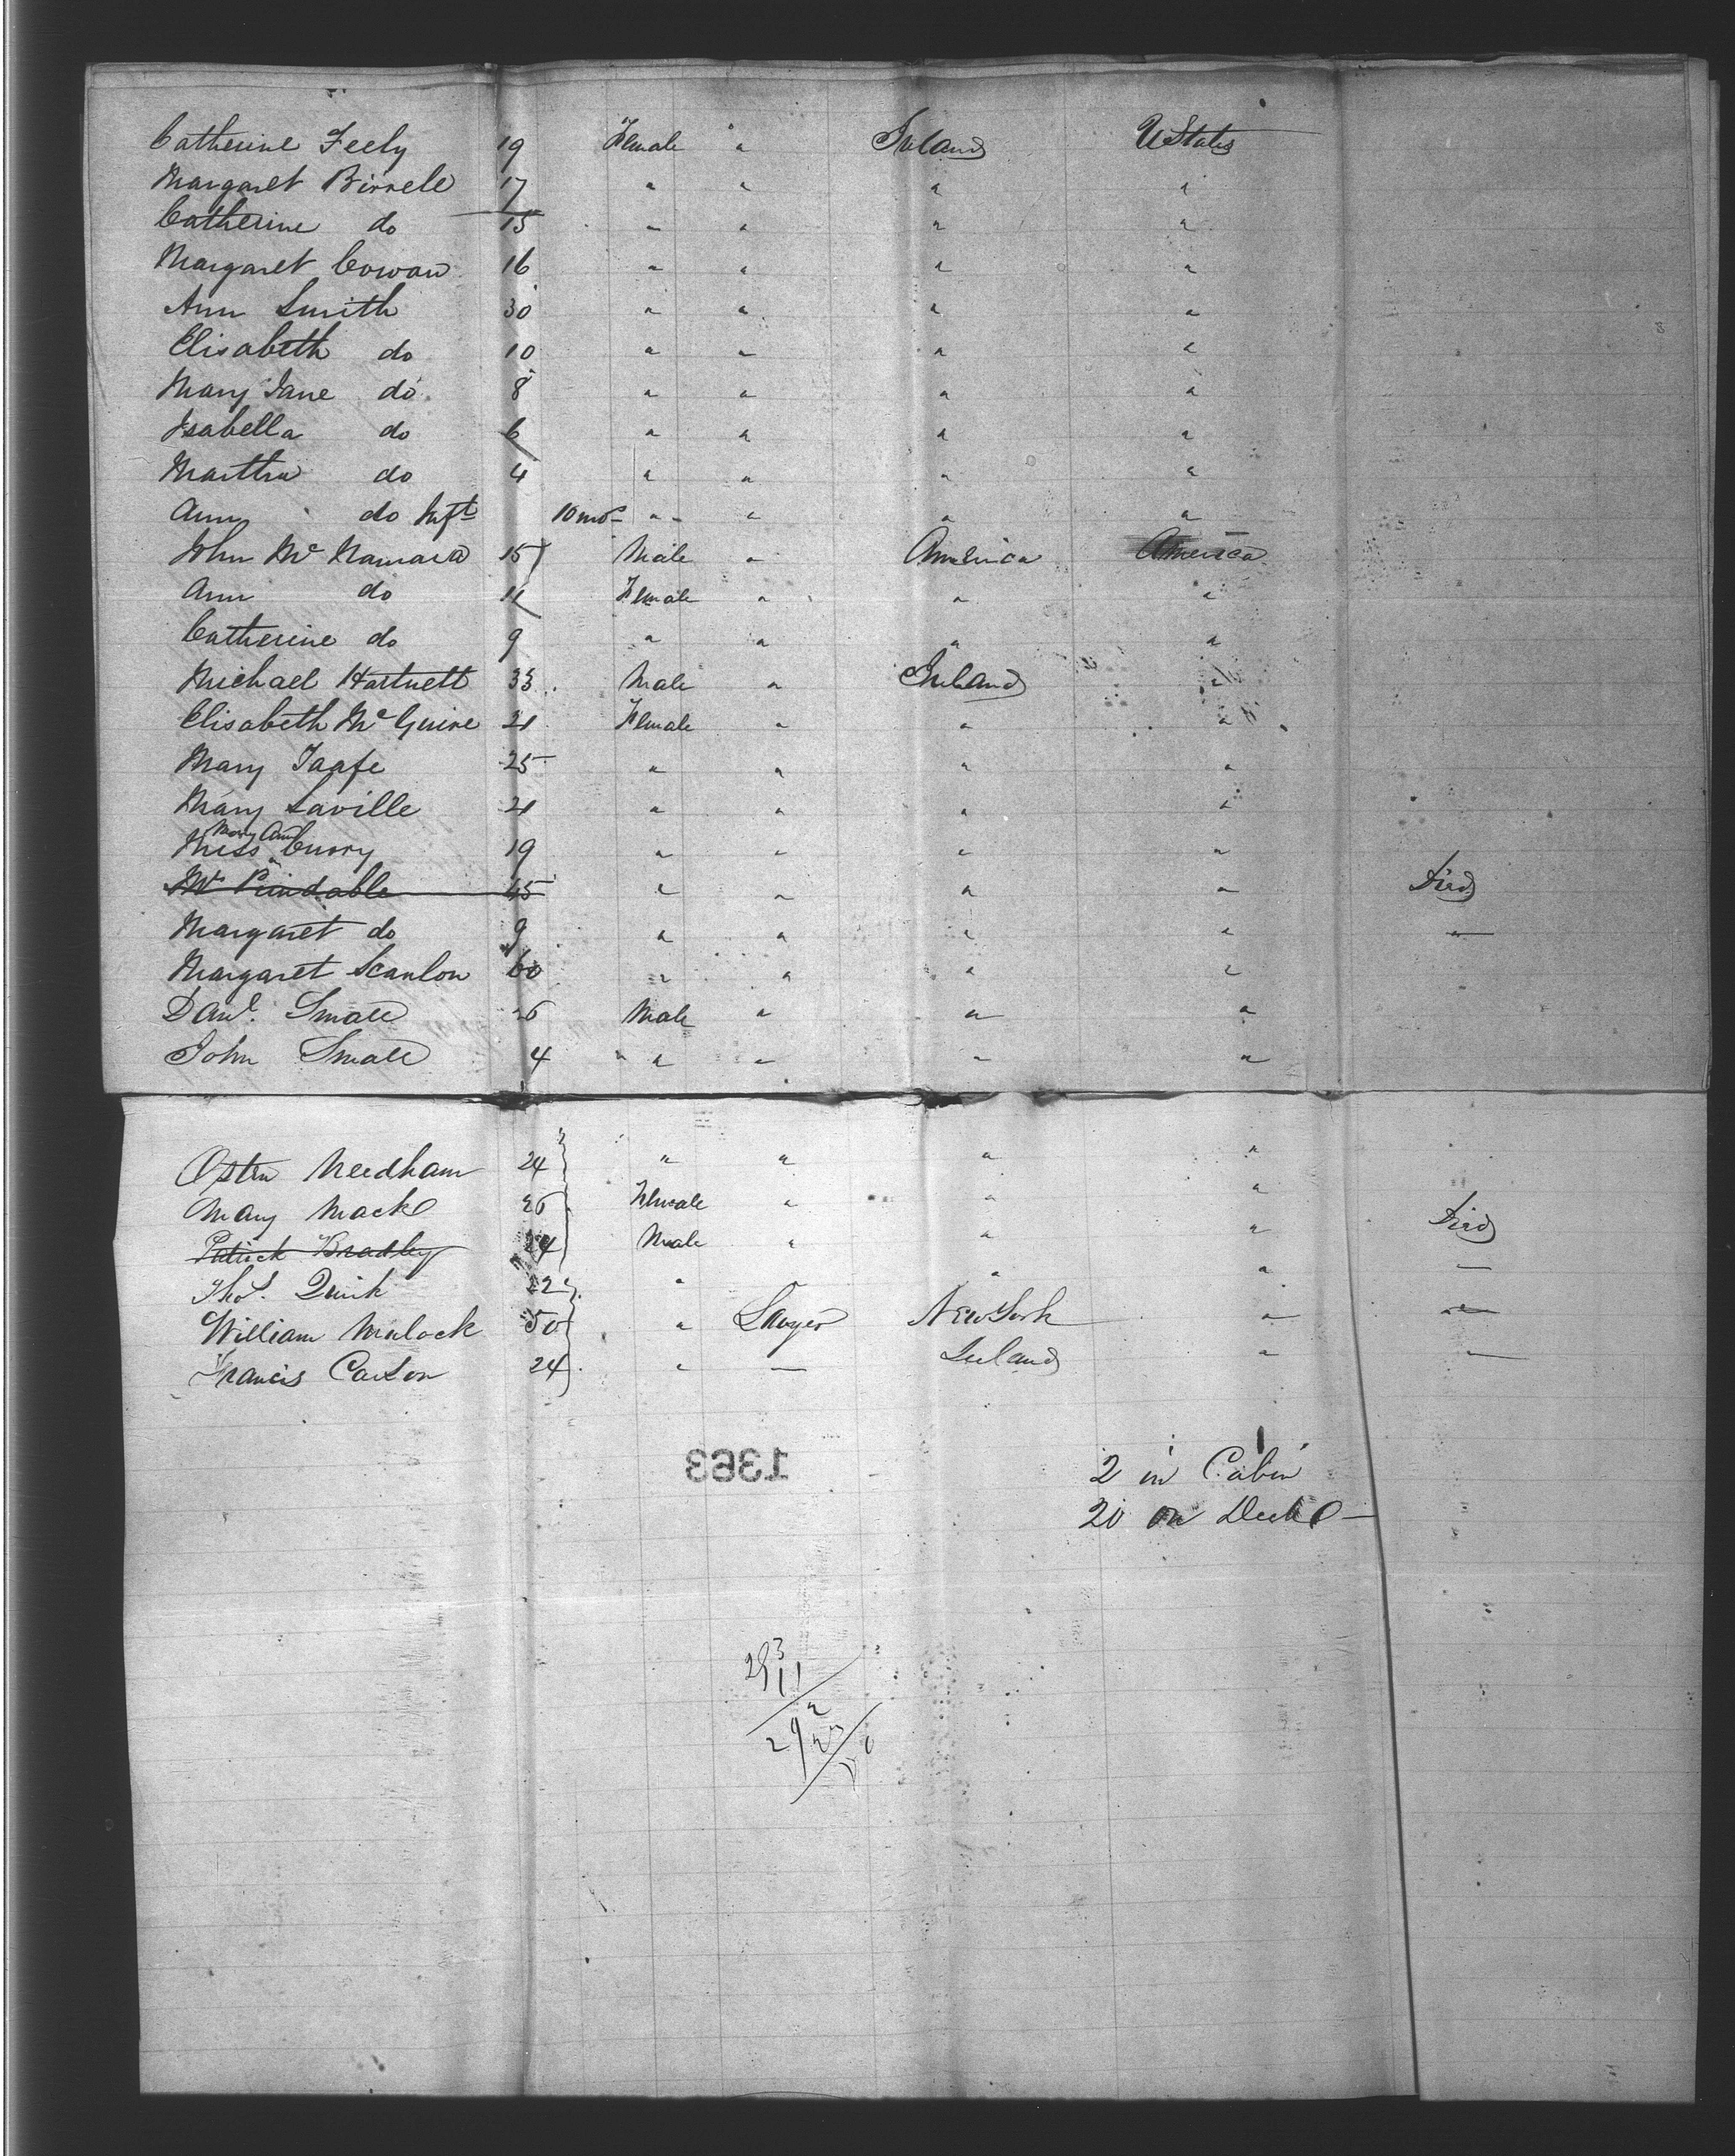 Catherine Feely 19 Female " Ireland UStates
Margaret Birrell 17 " " " "
Catherine do 15 " " " "
Margaret Cowan 16 " " " "
Ann Smith 30 " " " "
Elisabeth do 10 " " " "
Mary Jane do 8 " " " "
Isabella do 6 " " " "
Martha do 4 " " " "
Ann do Inft 10 mos " " " "
John Mc Namara 15 Male " America America
Ann do 11 Female " " "
Catherine do 9 " " " "
Michael Hartnett 33 Male " Ireland "
Elisabeth Mc Guire 21 Female " " "
Mary Taafe 25 " " " "
Mary Laville 21 " " " "
Miss Mary Ann Curry 19 " " " "
45 " " " " Died
Margaret do 9 " " " " "
Margaret Scanlon 60 " " " "
Danl. Small 26 Male " " "
John Small 4 " " " "
Needham 24 " " " "
Mary Mack 26 Female " " "
Patrick Bradley 24 Male " " " Died
Thos. Quirk 22 " " " —
William Mulock 50 " Lawyer New York " "
Francis Carson 24 " — Ireland " —
1363
2 in Cabin
20 on Deck —